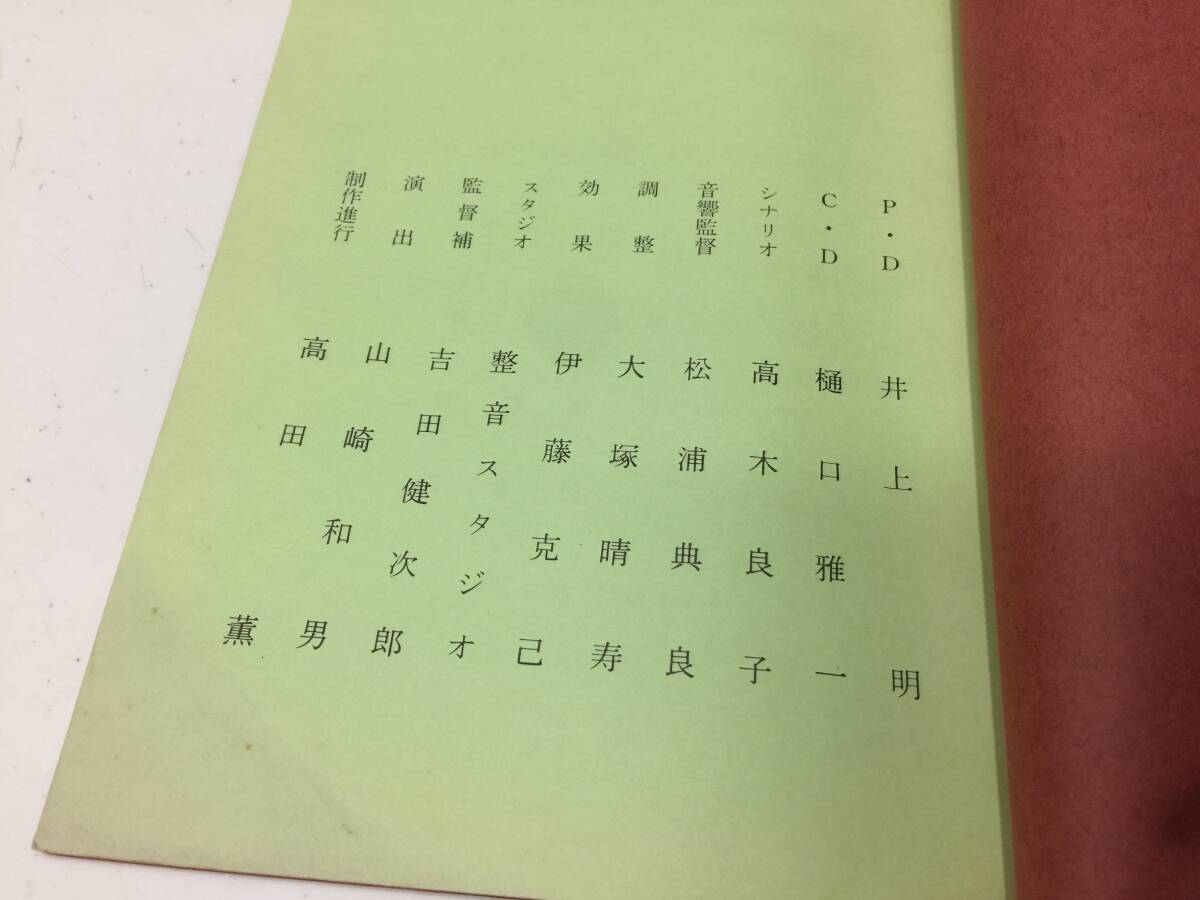 P・D 井上明
C・D 樋口雅一
シナリオ 高木良子
音響監督 松浦典良
調整 大塚晴寿
効果 伊藤克己
スタジオ 整音スタジオ
監督補 吉田健次郎
演出 山崎和男
制作進行 高田薫